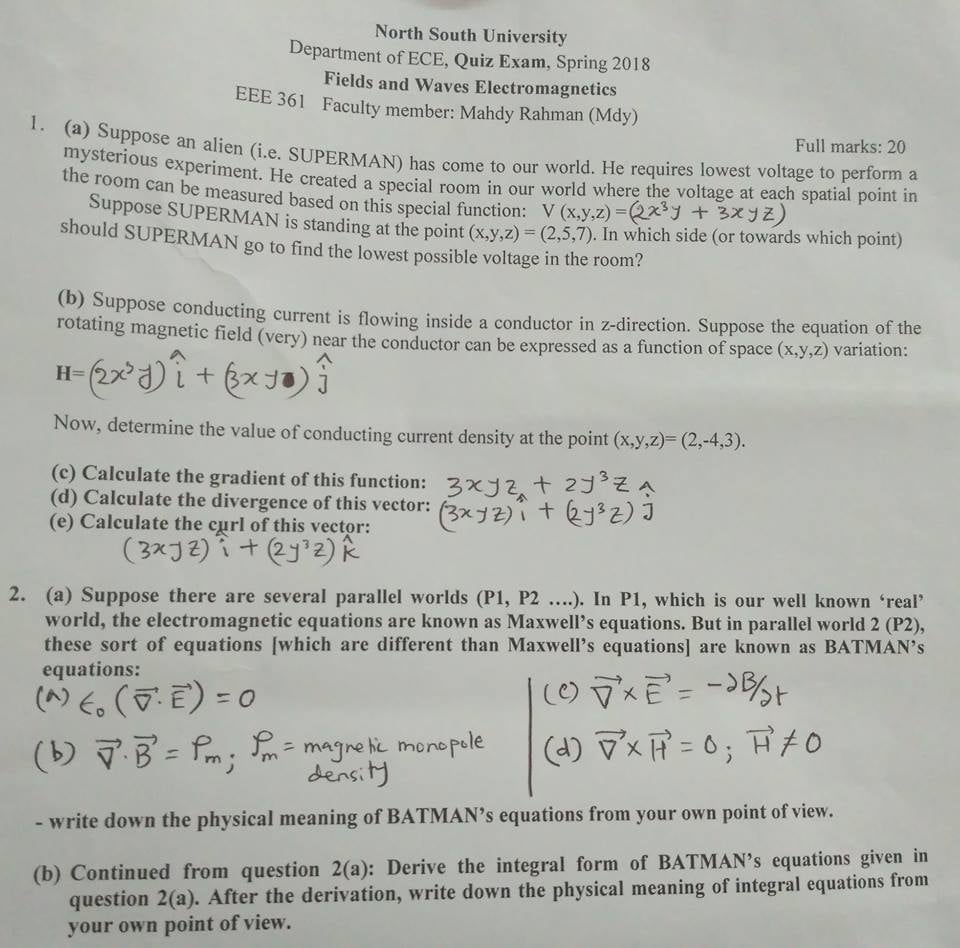 North South University
Department of ECE, Quiz Exam, Spring 2018
Fields and Waves Electromagnetics
EEE 361 Faculty member: Mahdy Rahman (Mdy)
Full marks: 20
1. (a) Suppose an alien (i.e. SUPERMAN) has come to our world. He requires lowest voltage to perform a
mysterious experiment. He created a special room in our world where the voltage at each spatial point in
the room can be measured based on this special function: V (x,y,z) =(2x³y + 3xyz)
Suppose SUPERMAN is standing at the point (x,y,z) = (2,5,7). In which side (or towards which point)
should SUPERMAN go to find the lowest possible voltage in the room?
(b) Suppose conducting current is flowing inside a conductor in z-direction. Suppose the equation of the
rotating magnetic field (very) near the conductor can be expressed as a function of space (x,y,z) variation:
H=(2x³y) î + (3xy) ĵ
Now, determine the value of conducting current density at the point (x,y,z)= (2,-4,3).
(c) Calculate the gradient of this function: 3xyz + 2y³z
(d) Calculate the divergence of this vector: (3xyz) î + (2y³z) ĵ
(e) Calculate the curl of this vector:
(3xyz) î + (2y³z) k̂
2. (a) Suppose there are several parallel worlds (P1, P2 ....). In P1, which is our well known ‘real’
world, the electromagnetic equations are known as Maxwell’s equations. But in parallel world 2 (P2),
these sort of equations [which are different than Maxwell’s equations] are known as BATMAN’s
equations:
(a) ϵ₀ (∇⃗·E⃗) = 0
(b) ∇⃗·B⃗ = ρm; ρm = magnetic monopole
density
(c) ∇⃗×E⃗ = -∂B/∂t
(d) ∇⃗×H⃗ = 0; H⃗ ≠ 0
- write down the physical meaning of BATMAN’s equations from your own point of view.
(b) Continued from question 2(a): Derive the integral form of BATMAN’s equations given in
question 2(a). After the derivation, write down the physical meaning of integral equations from
your own point of view.